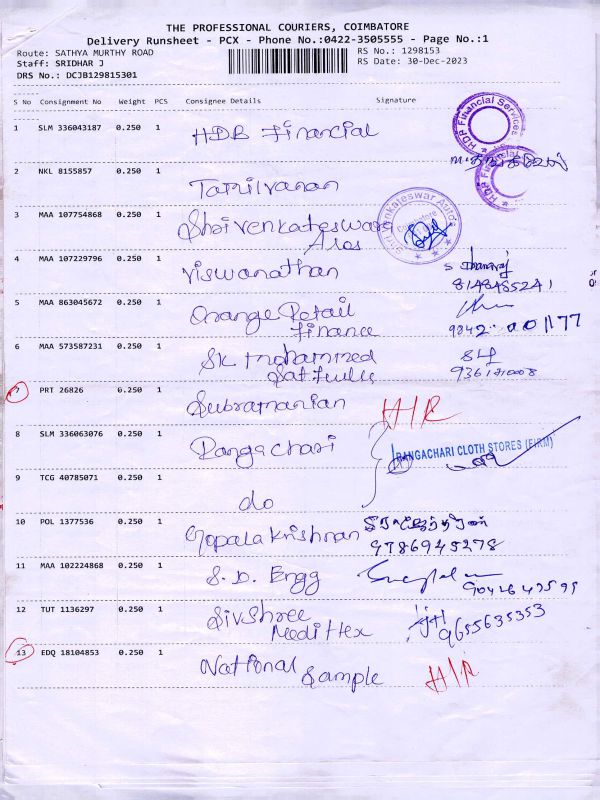 THE PROFESSIONAL COURIERS, COIMBATORE
Delivery Runsheet - PCX - Phone No.:0422-3505555 - Page No.:1
Route: SATHYA MURTHY ROAD
RS No.: 1298153
Staff: SRIDHAR J
RS Date: 30-Dec-2023
DRS No.: DCJB129815301
S No Consignment No Weight PCS Consignee Details Signature
1 SLM 336043187 0.250 1 HDB Financial
HDP Financial Services
HDP Financial
2 NKL 8155857 0.250 1 Tamilvanan
3 MAA 107754868 0.250 1 Shrivenkateswara
Shri Venkateswar Auto
Coimbatore
4 MAA 107229796 0.250 1 Viswanathan
S Dhanaraj
8148485241
5 MAA 863045672 0.250 1 Orange Retail
Finance
6 MAA 573587231 0.250 1 SK Mohammed
7 PRT 26826 0.250 1 Subramanian
8 SLM 336063076 0.250 1 Rangachari
RANGACHARI CLOTH STORES (FIRM)
9 TCG 40785071 0.250 1 do
10 POL 1377536 0.250 1 Gopalakrishnan
9786945278
11 MAA 102224868 0.250 1 S. D. Engg
12 TUT 1136297 0.250 1 Sivshree
9655635353
13 EDQ 18104853 0.250 1 National
Sample